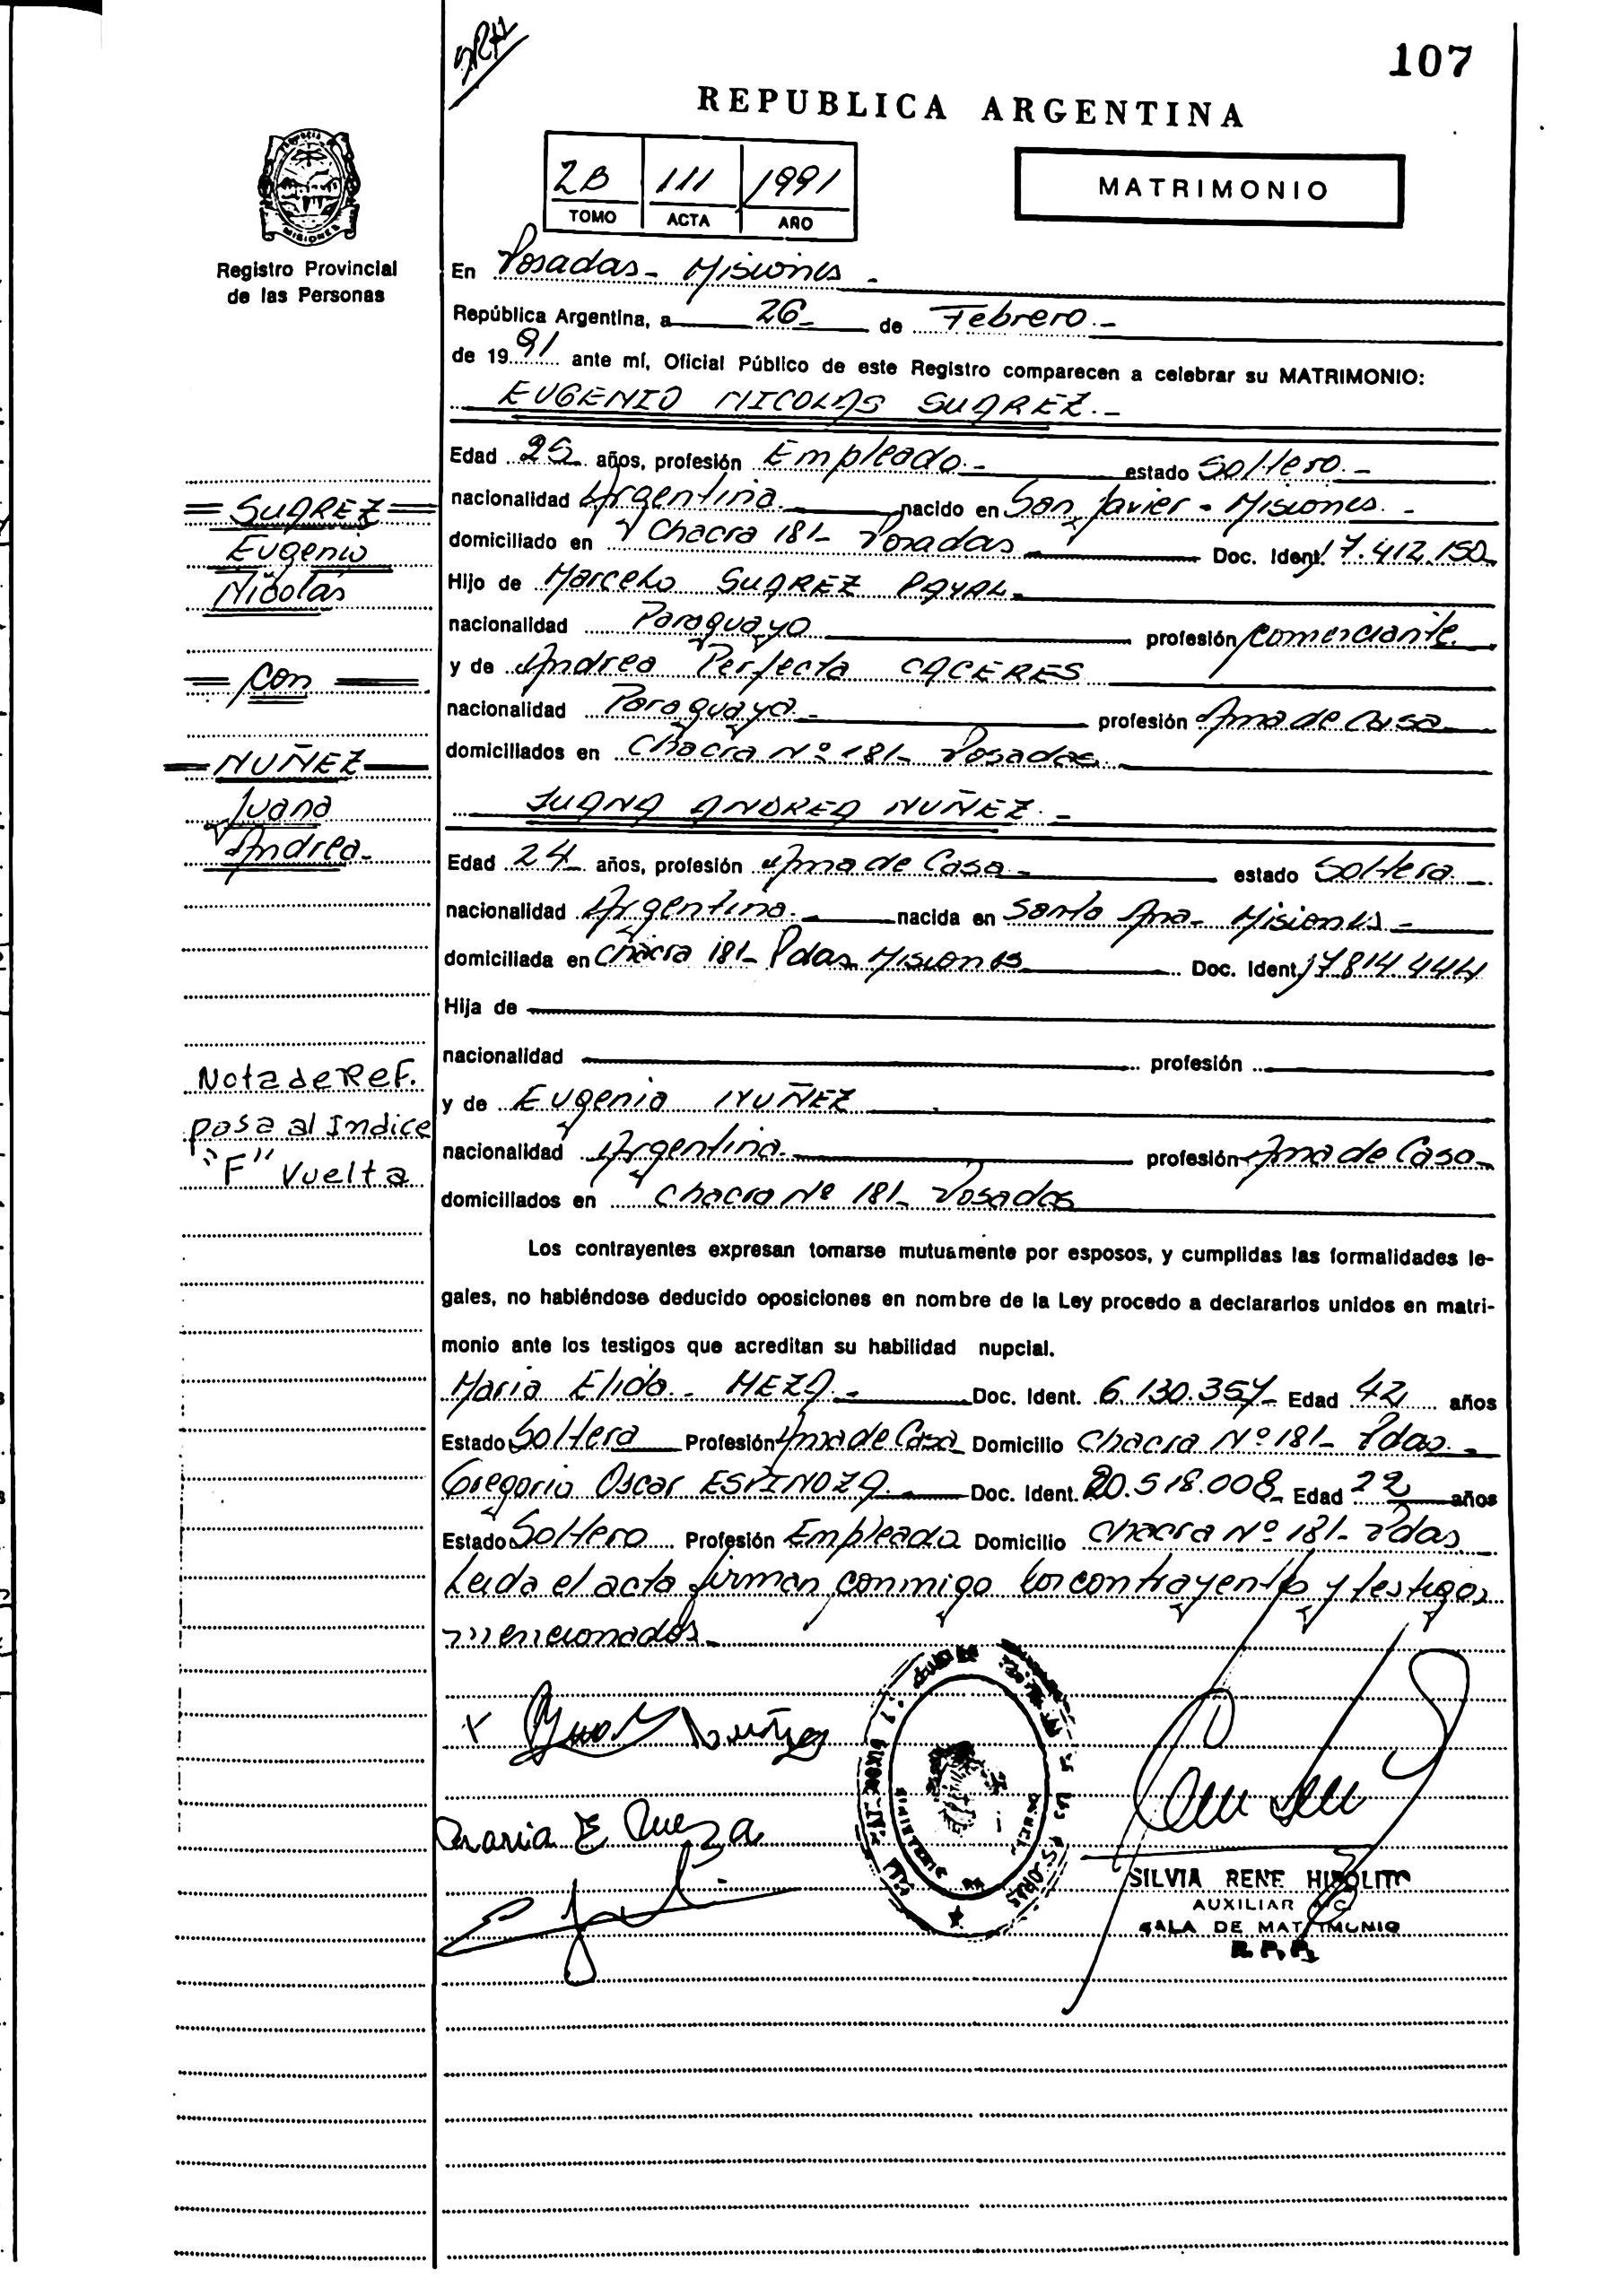 107
REPUBLICA ARGENTINA
2B 111 1991
TOMO ACTA AÑO
MATRIMONIO
MISIONES
Registro Provincial
de las Personas
En Posadas - Misiones -
República Argentina, a 26 - de Febrero. -
de 1991 ante mí, Oficial Público de este Registro comparecen a celebrar su MATRIMONIO:
EUGENIO NICOLAS SUAREZ. -
Edad 25 años, profesión Empleado. - estado Soltero. -
nacionalidad Argentina. nacido en San Javier - Misiones. -
domiciliado en Chacra 181 - Posadas Doc. Ident. 17.412.150
Hijo de Marcelo SUAREZ PAYAL
nacionalidad Paraguayo profesión comerciante.
y de Andrea Perfecta CACERES
nacionalidad Paraguaya. - profesión Ama de Casa
domiciliados en Chacra Nº 181 - Posadas
JUANA ANDREA NUÑEZ. -
Edad 24 años, profesión Ama de Casa estado Soltera
nacionalidad Argentina. nacida en Santa Ana - Misiones -
domiciliada en Chacra 181 - Pdas Misiones Doc. Ident. 17814444
Hija de
nacionalidad profesión
y de Eugenia NUÑEZ
nacionalidad Argentina. profesión Ama de Casa -
domiciliados en Chacra Nº 181 - Posadas
Los contrayentes expresan tomarse mutuamente por esposos, y cumplidas las formalidades le-
gales, no habiéndose deducido oposiciones en nombre de la Ley procedo a declararlos unidos en matri-
monio ante los testigos que acreditan su habilidad nupcial.
Maria Elida - MEZA. - Doc. Ident. 6.130.357 - Edad 42 años
Estado Soltera Profesión Ama de Casa Domicilio Chacra Nº 181 - Pdas. -
Gregorio Oscar ESPINOZA. Doc. Ident. 20.518.008 - Edad 22 años
Estado Soltero Profesión Empleado Domicilio Chacra Nº 181 - Pdas
Leida el acta firman conmigo los contrayentes y testigos
mencionados. -
= SUAREZ =
Eugenio
Nicolás
= con =
= NUÑEZ =
Juana
Andrea -
Nota de Ref.
pasa al Indice
"F" Vuelta
Nuñez
Maria E Meza
SILVIA RENE HIPOLITO
AUXILIAR
SALA DE MATRIMONIO
R. P. P.